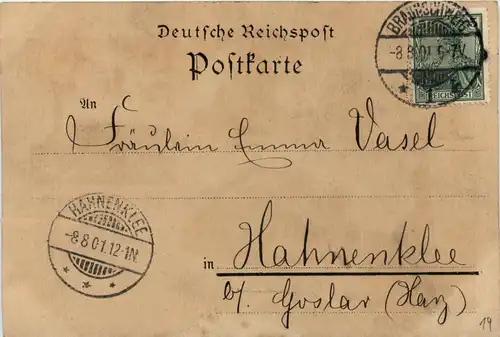 Deutsche Reichspost
Postkarte
BRAUNSCHWEIG
-8 8 01 6-7V
REICHSPOST
An
Fräulein Emma Vasel
HAHNENKLEE
-8 8 01.12-1N.
in Hahnenklee
b/. Goslar (Harz)
14